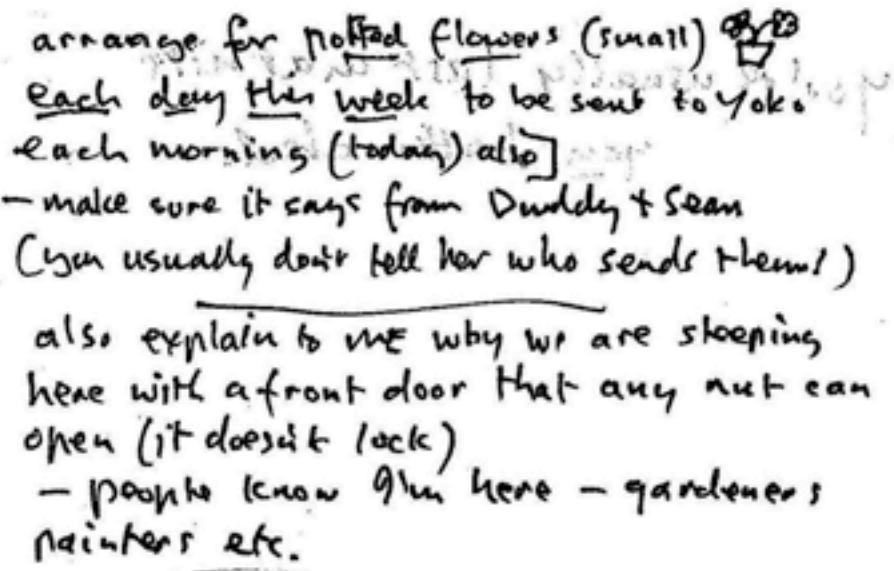 arrange for potted flowers (small)
each day this week to be sent to Yoko
each morning (today) also]
- make sure it says from Daddy + Sean
(you usually don't tell her who sends them!)
also explain to ME why we are sleeping
here with a front door that any nut can
open (it doesn't lock)
- people know I'm here - gardeners
painters etc.